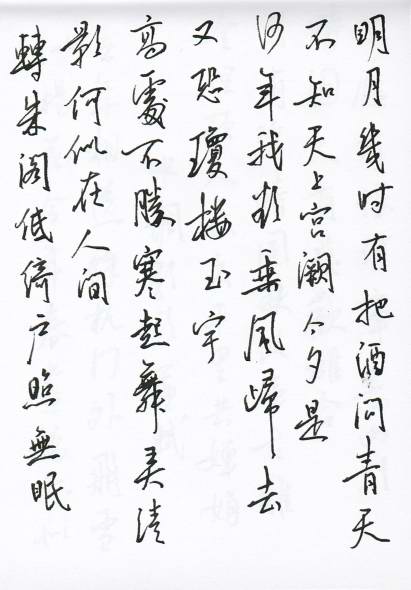 明月幾时有把酒问青天
不知天上宫阙今夕是
何年我欲乘風歸去
又恐瓊楼玉宇
高處不勝寒起舞弄清
影何似在人间
轉朱阁低倚户照無眠